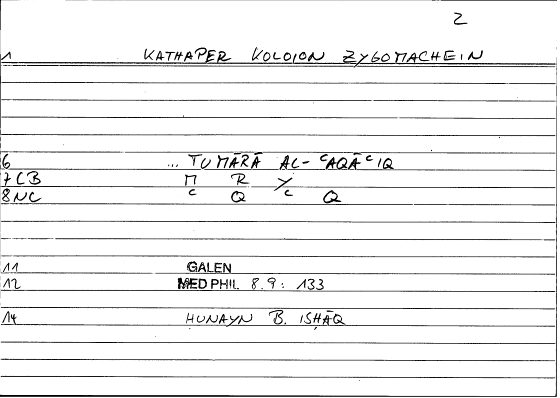 2
1 KATHAPER KOLOION ZYGOMACHEIN
6 ... TUMĀRĀ AL-ᶜAQĀᶜIQ
7CB M R Y
8NC ᶜ Q ᶜ Q
11 GALEN
12 MED PHIL 8.9: 133
14 ḤUNAYN B. ISḤĀQ